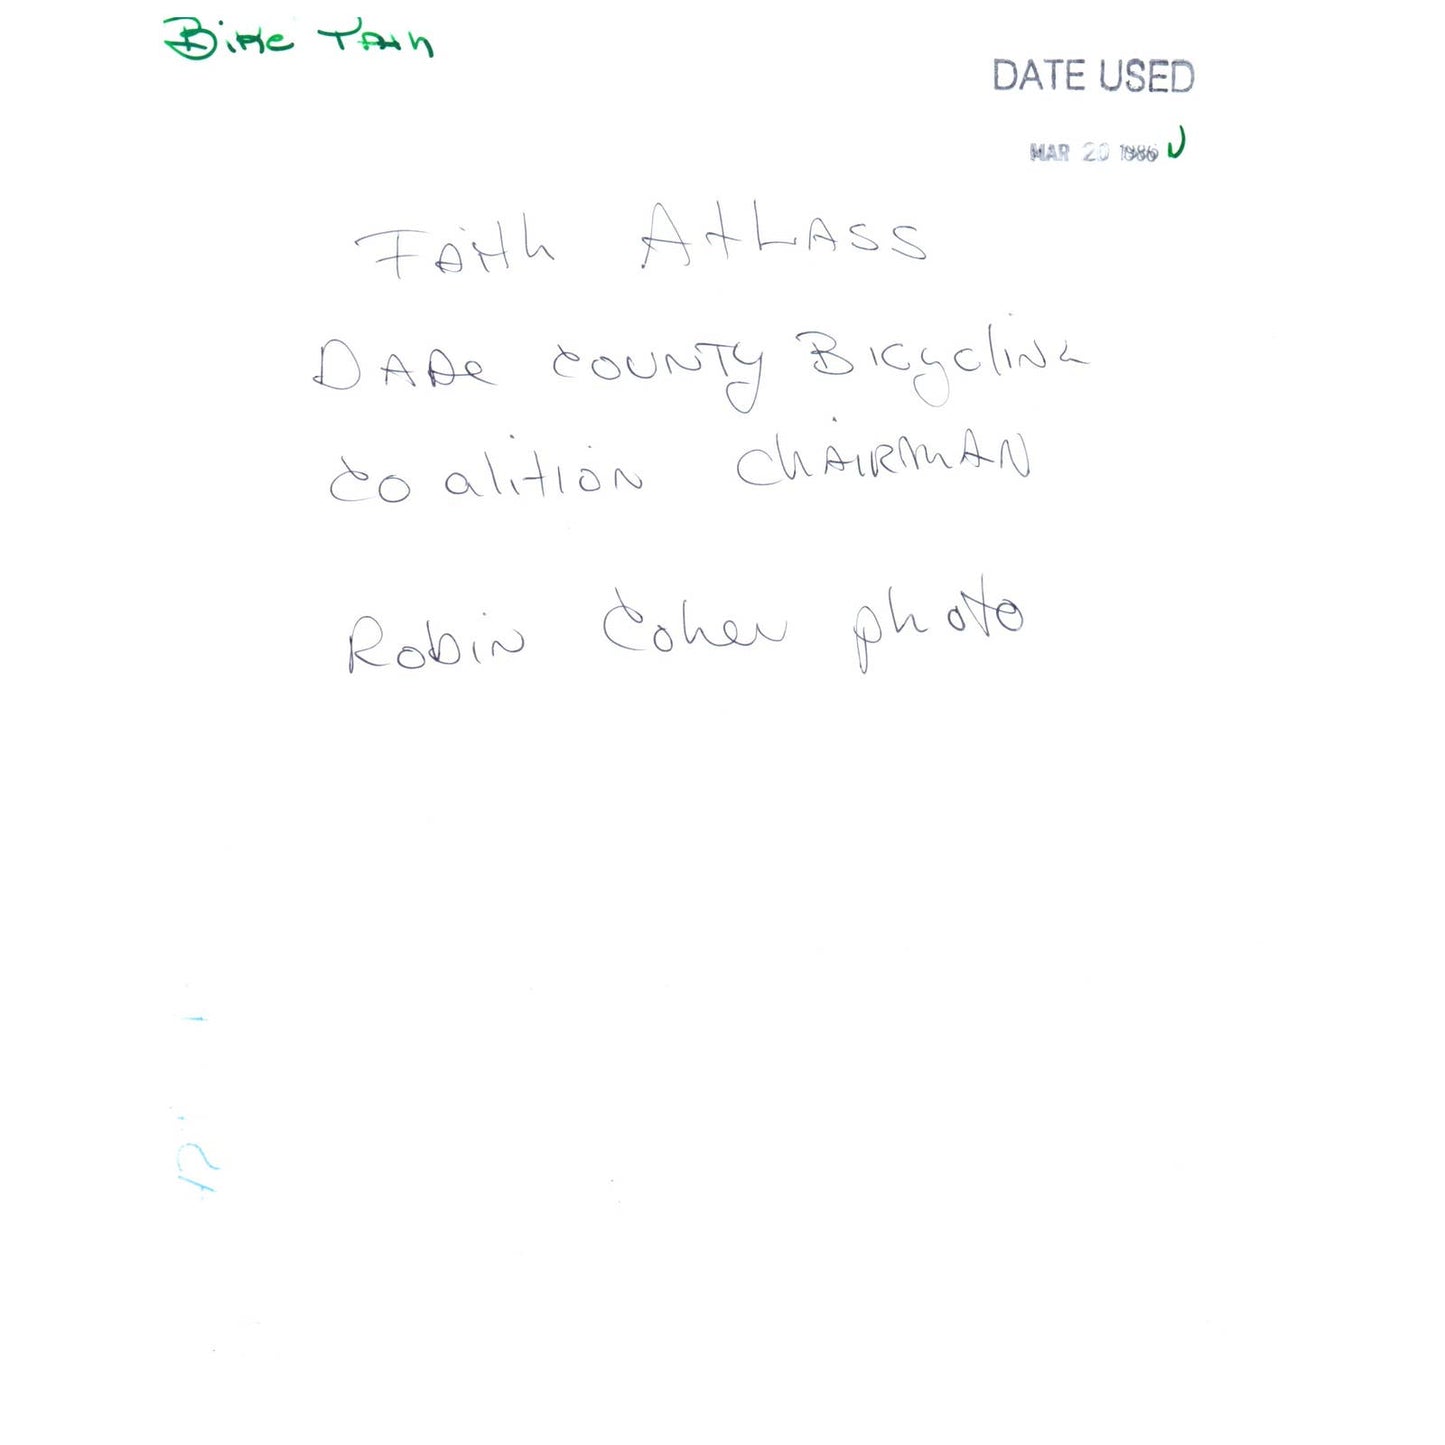 Bike
DATE USED
MAR 20 1986
Faith Atlass
Dade County Bicycling
Coalition Chairman
Robin Cohen photo